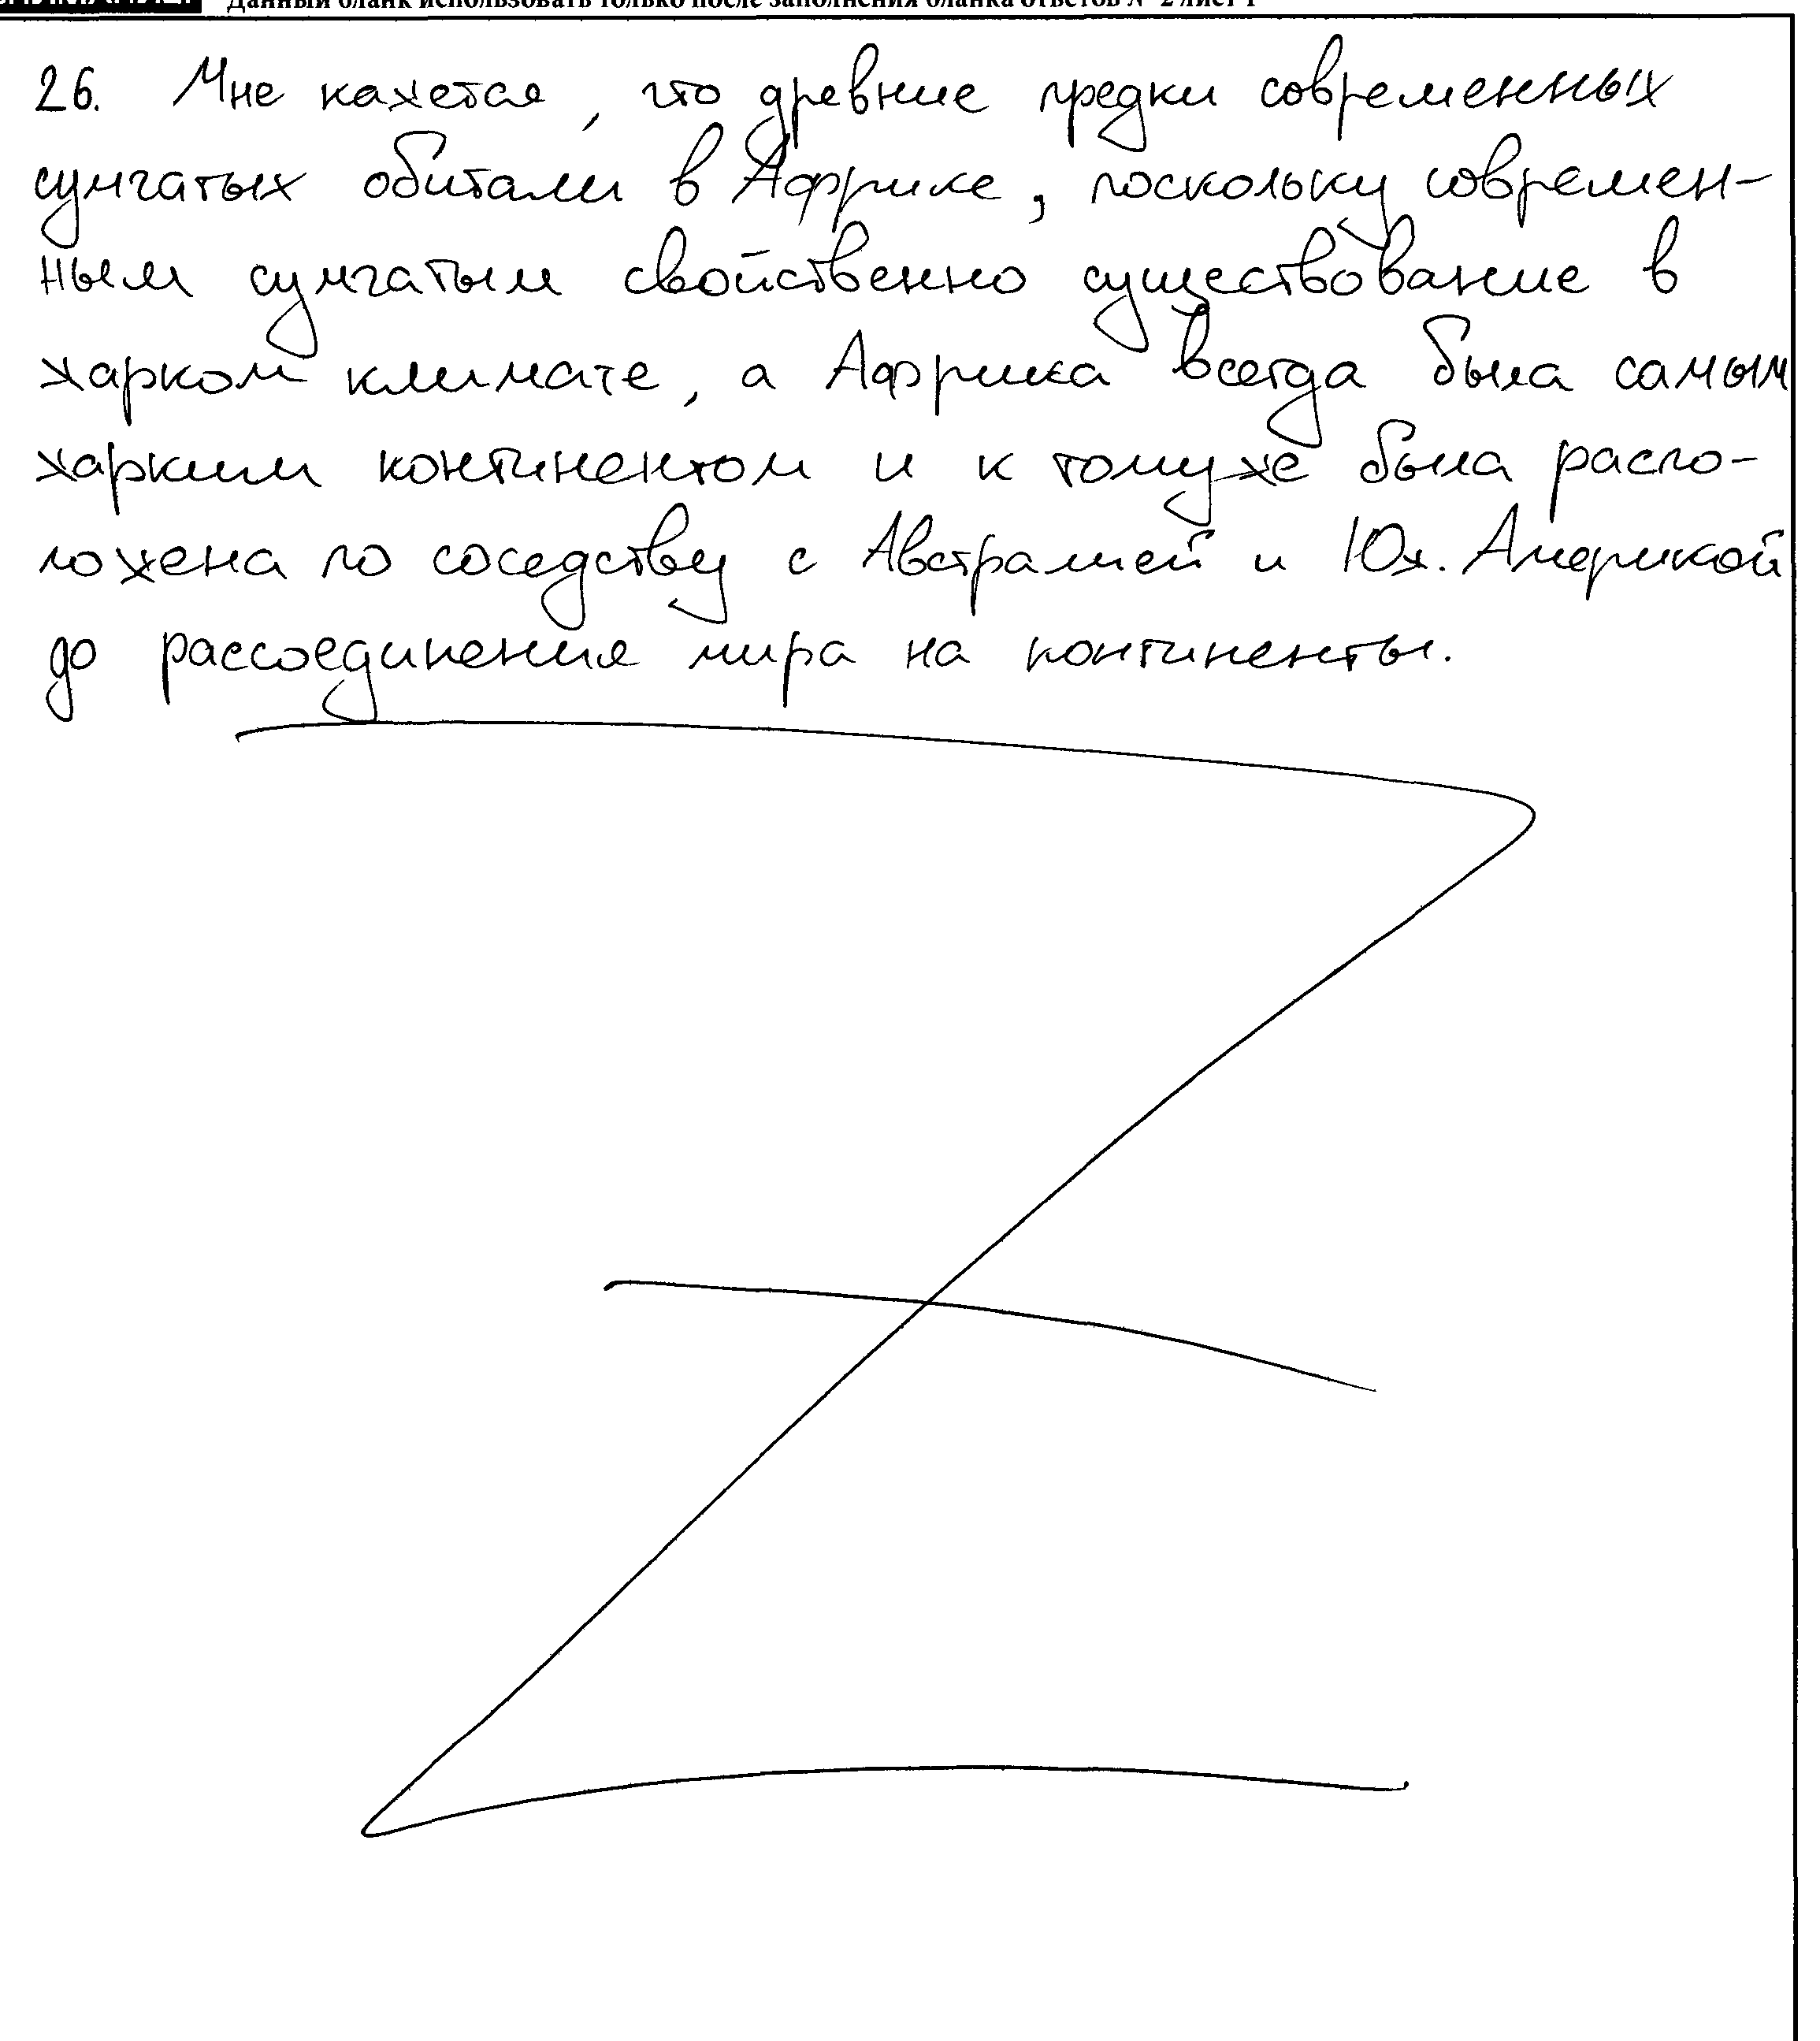 Данный бланк использовать только после заполнения бланка ответов № 2 лист 1
26. Мне кажется, что древние предки современных
сумчатых обитали в Африке, поскольку современ-
ным сумчатым свойственно существование в
жарком климате, а Африка всегда была самым
жарким континентом и к тому же была распо-
ложена по соседству с Австралией и Юж. Америкой
до рассоединения мира на континенты.